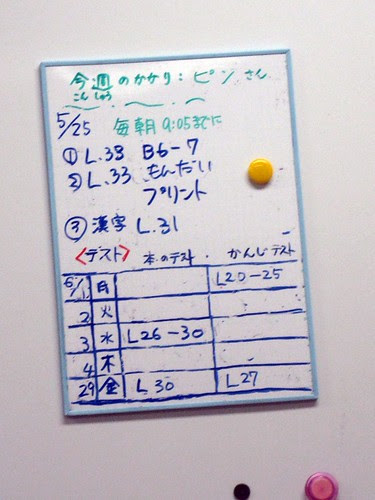 今週のかかり：ピンさん
こんしゅう
5/25 毎朝9:05までに
① L.33 B6-7
② L.33 もんだい
プリント
③ 漢字 L.31
〈テスト〉 本のテスト かんじテスト
6/1 月 L20-25
2 火
3 水 L26-30
4 木
29 金 L30 L27